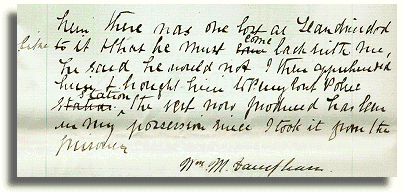 him there was one lost at Llandrindod
like to it & that he must come back with me,
he said he would not I then apprehended
him & brought him to Penybont Police
station the vest now produced has been
in my possession since I took it from the
prisoner
Wm. M.